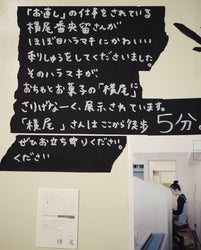 「お直し」の仕事をされている
横尾香央留さんが
ほぼ日ハラマキにかわいい
刺しゅうをしてくださいました。
そのハラマキが、
おもちとお菓子の「横尾」に
さりげなーく、展示されています。
「横尾」さんはここから徒歩5分。
ぜひお立ち寄りください。
ください
横尾